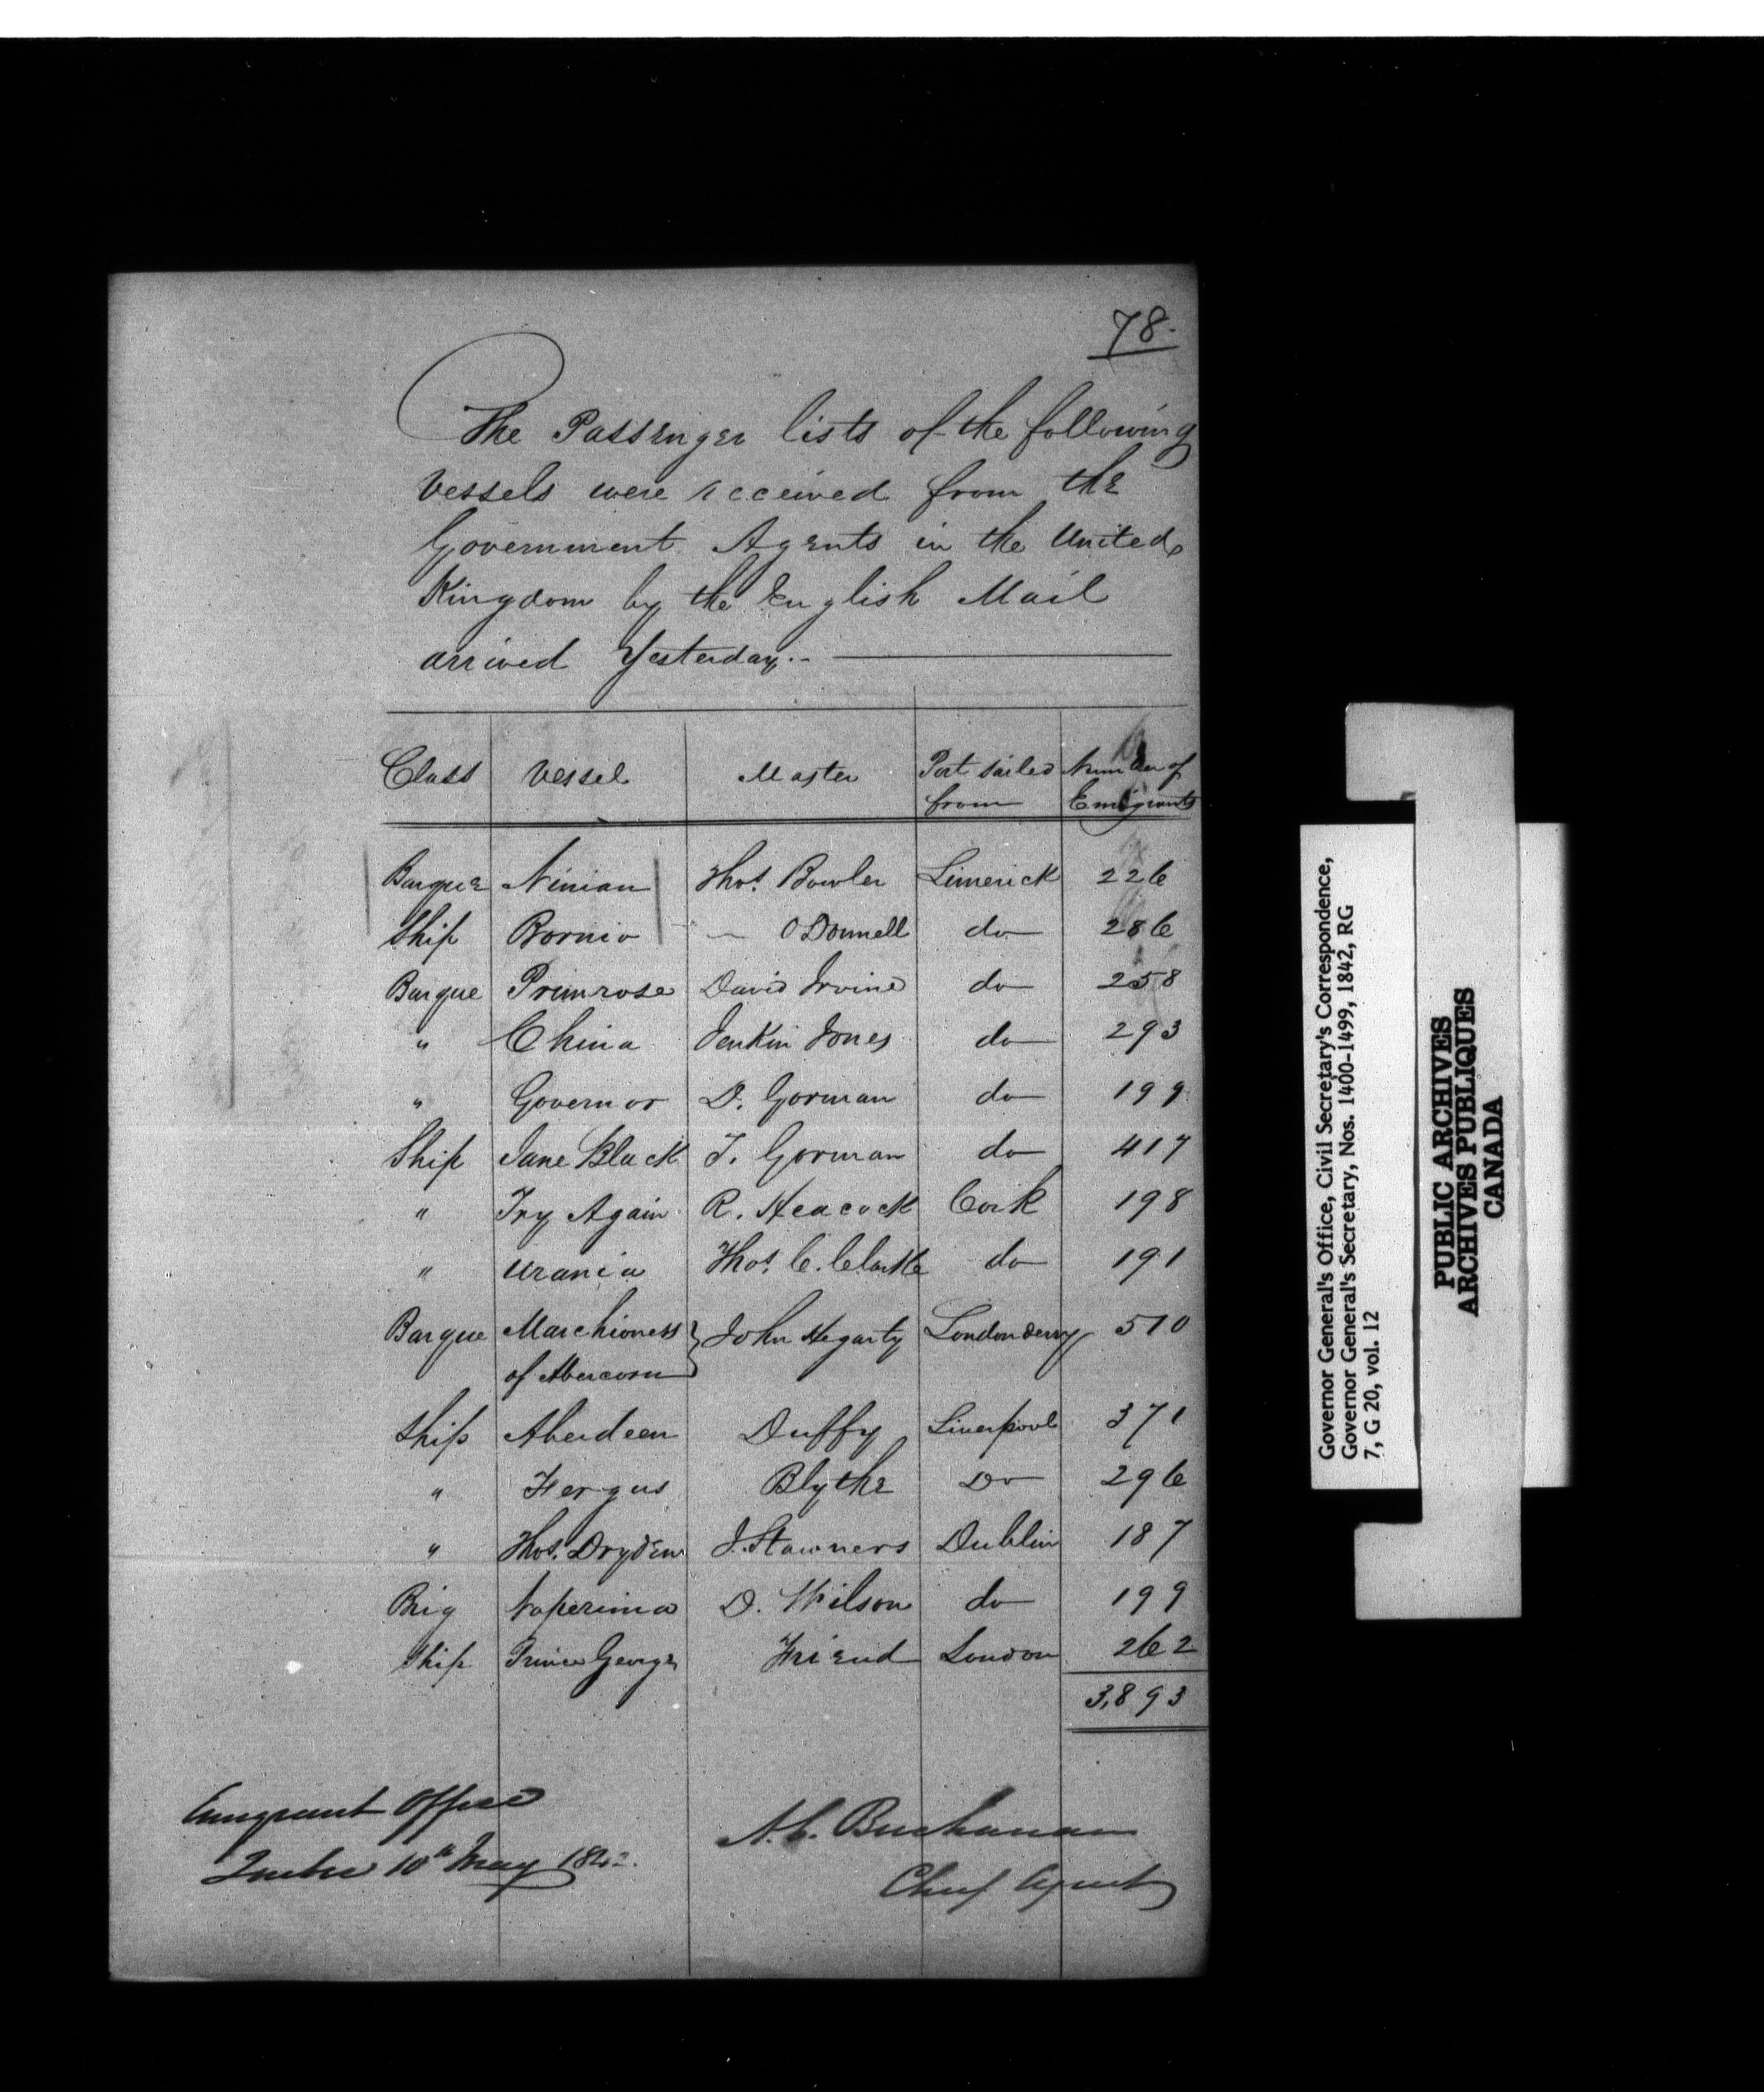 78.
The Passenger lists of the following
Vessels were received from the
Government Agents in the United
Kingdom by the English Mail
arrived Yesterday..
Class Vessel Master Port sailed from Number of Emigrants
Barque Ninian Thos. Bowler Limerick 226
Ship Bornio — O Donnell do 286
Barque Primrose David Irvine do 258
" China Jenkin Jones do 293
" Governor D. Gorman do 199
Ship Jane Black T. Gorman do 417
" Try Again R. Heacock Cork 198
" Urania Thos. C. Clarke do 191
Barque Marchioness } John Hegarty Londonderry 510
of Abercorn
Ship Aberdeen Duffy Liverpool 371
" Fergus Blythe Do 296
" Thos. Dryden J. Stawners Dublin 187
Brig Naperima D. Wilson do 199
Ship Prince George Friend London 262
3,893
Emigrant Office
Quebec 10th May 1842.
A.C. Buchanan
Chief Agent
Governor General's Office, Civil Secretary's Correspondence,
Governor General's Secretary, Nos. 1400-1499, 1842, RG
7, G 20, vol. 12
PUBLIC ARCHIVES
ARCHIVES PUBLIQUES
CANADA